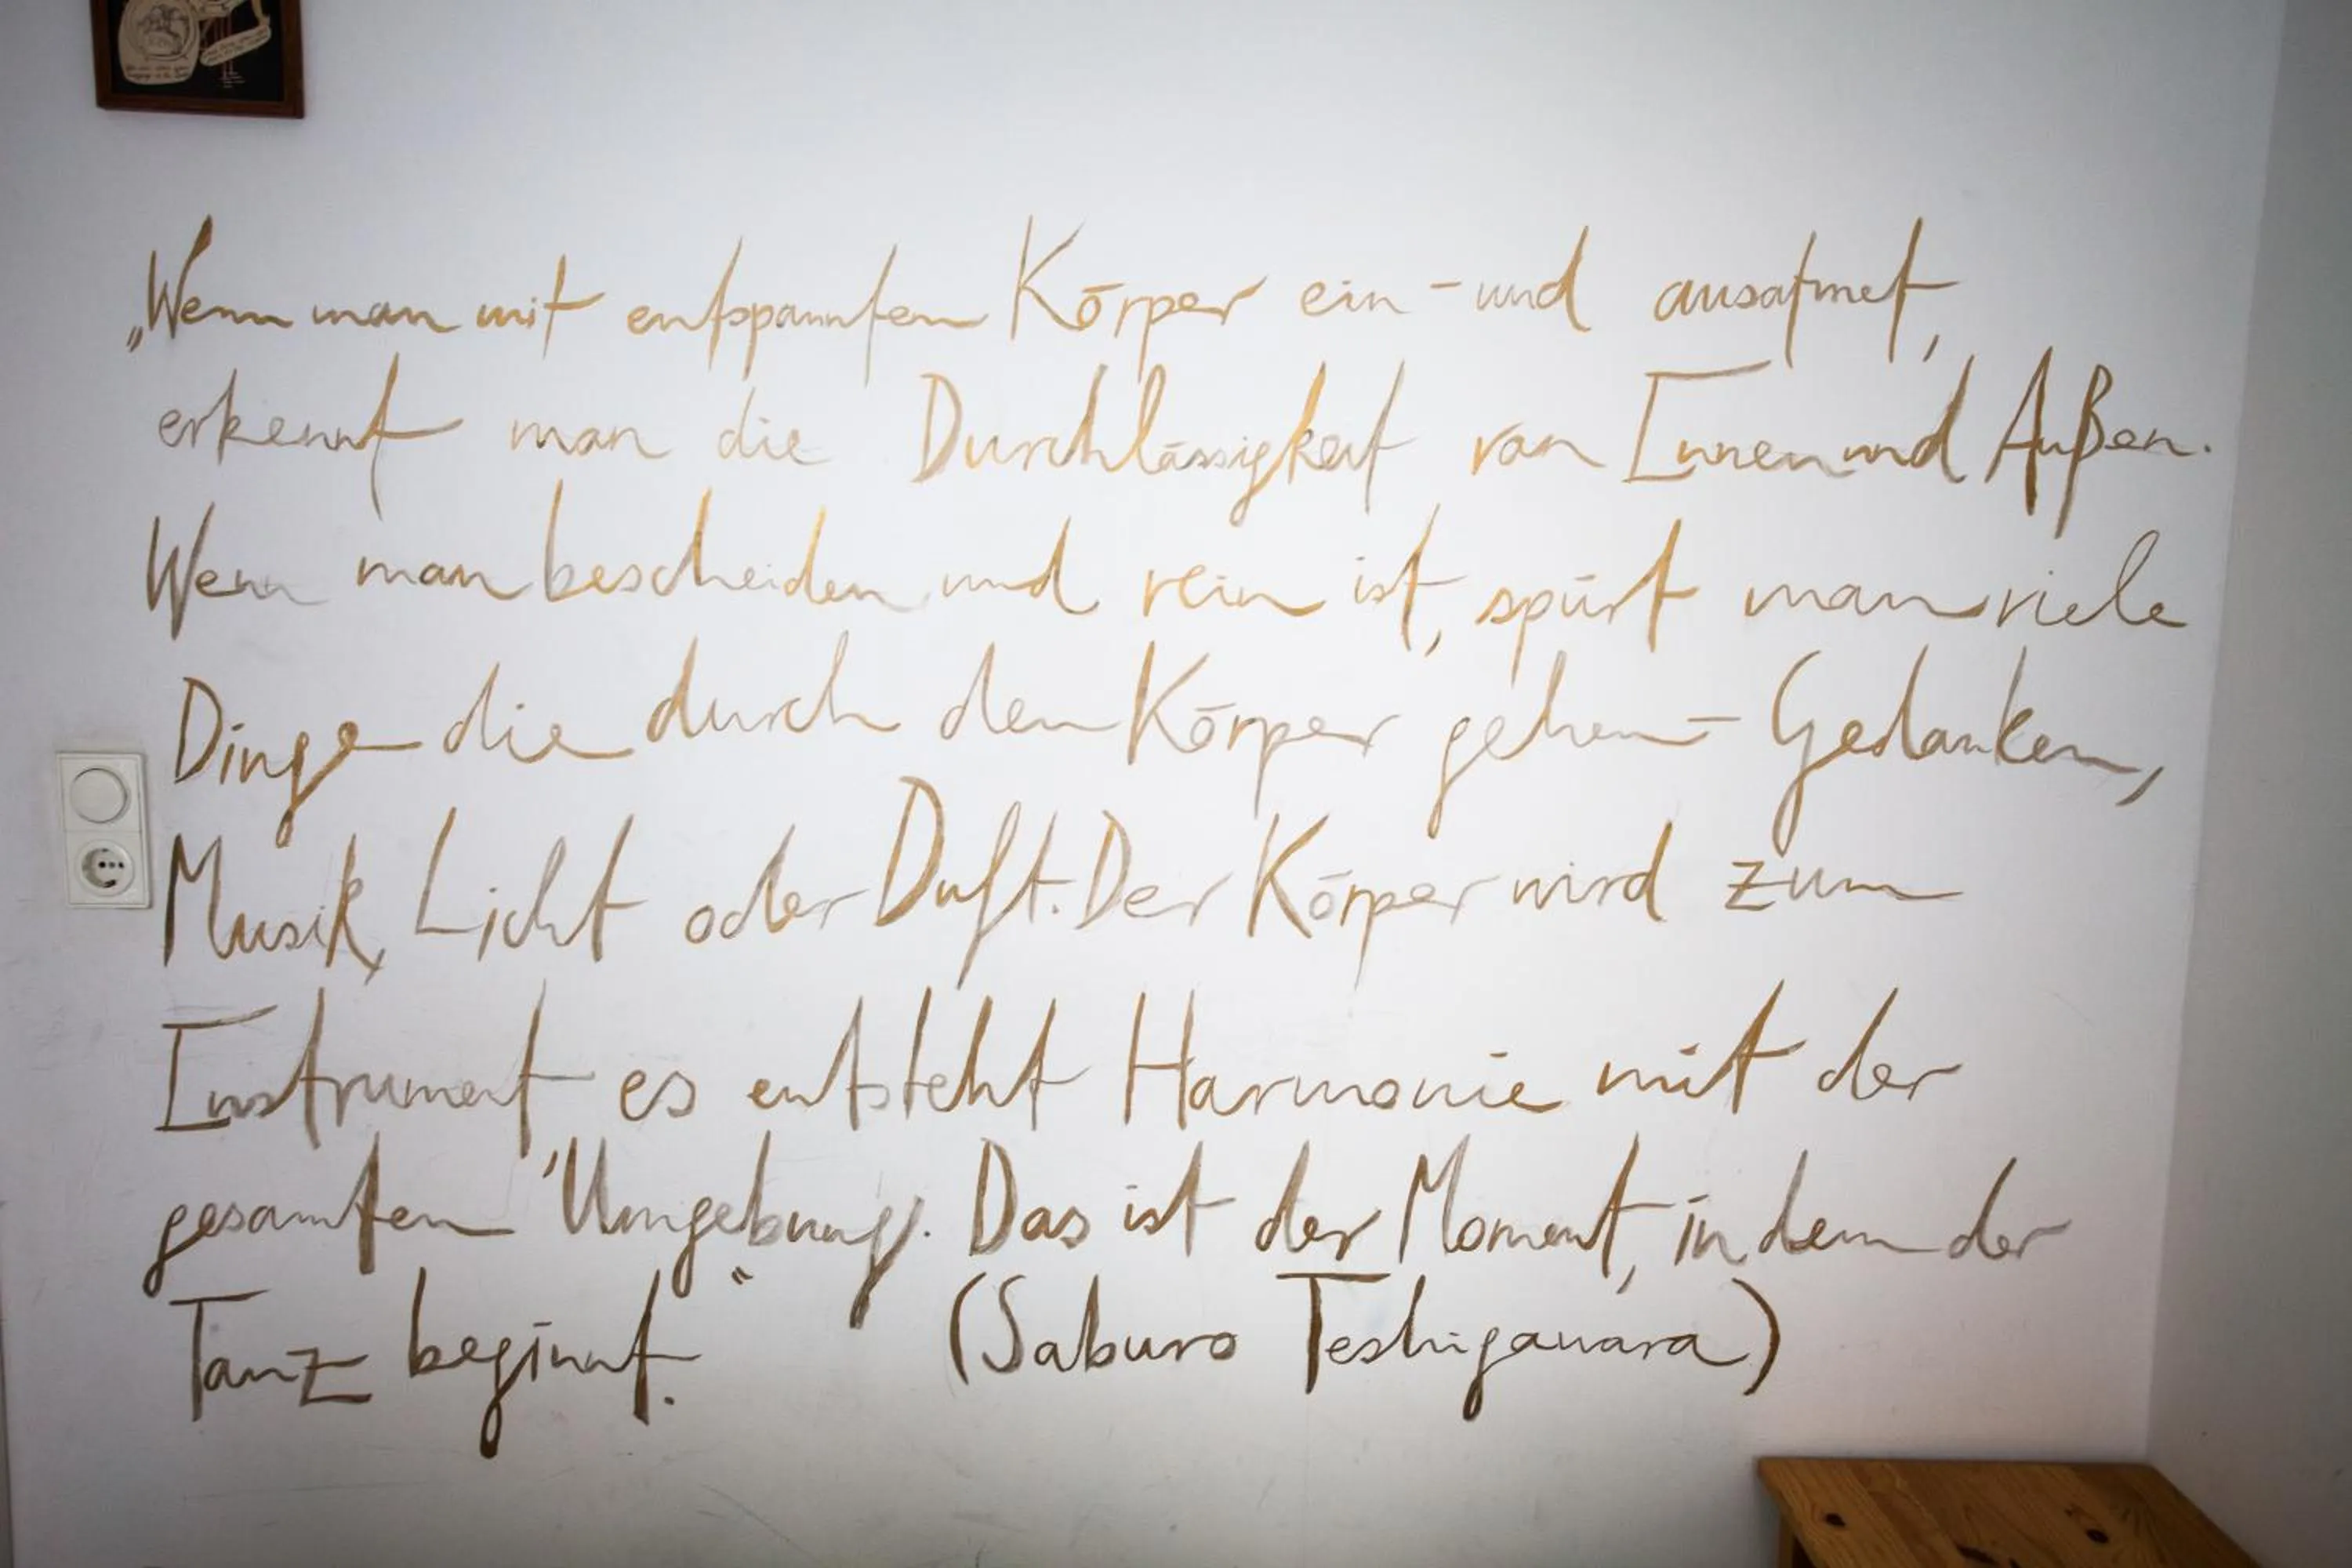 „Wenn man mit entspannten Körper ein - und ausatmet,
erkennt man die Durchlässigkeit von Innen und Außen.
Wenn man bescheiden und rein ist, spürt man viele
Dinge die durch den Körper gehen - Gedanken,
Musik, Licht oder Duft. Der Körper wird zum
Instrument, es entsteht Harmonie mit der
gesamten Umgebung. Das ist der Moment, in dem der
Tanz beginnt." (Saburo Teshigawara)